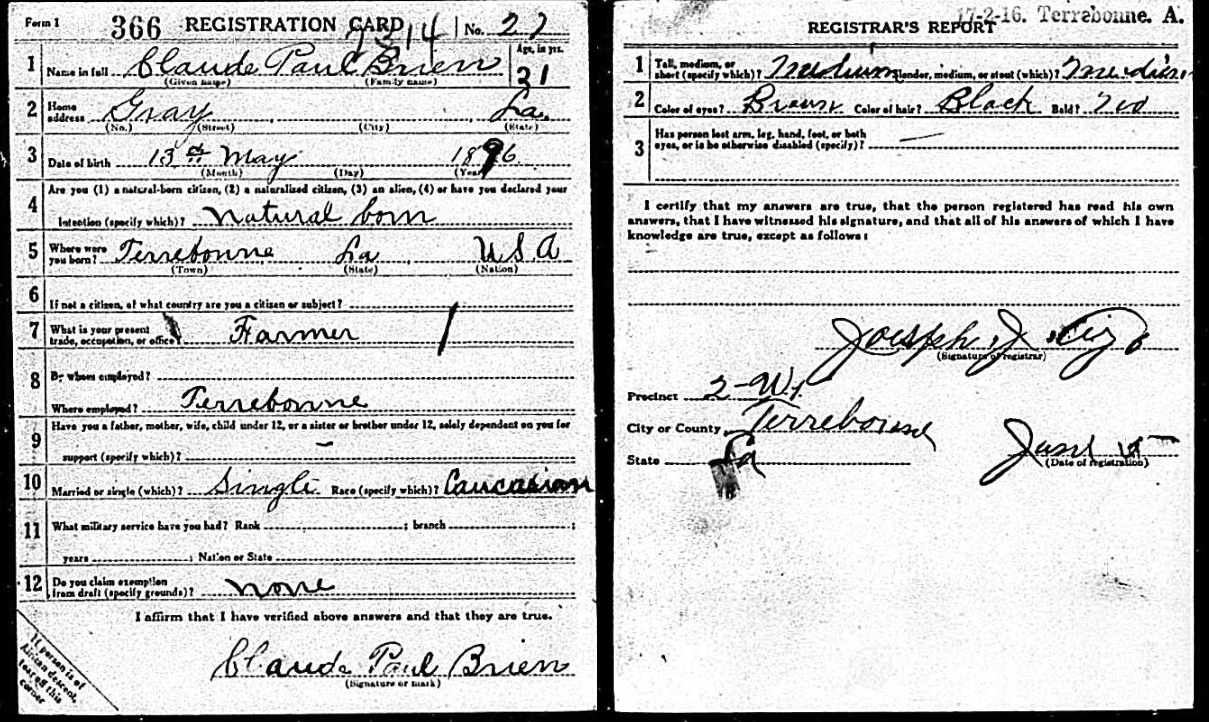 Form 1 366 REGISTRATION CARD No. 27
7314
1 Name in full Claude Paul Brien Age, in yrs.
(Given name) (Family name) 21
2 Home address Gray La.
(No.) (Street) (City) (State)
3 Date of birth 13th May 1896
(Month) (Day) (Year)
4 Are you (1) a natural-born citizen, (2) a naturalized citizen, (3) an alien, (4) or have you declared your
intention (specify which)? Natural born
5 Where were you born? Terrebonne La U.S.A
(Town) (State) (Nation)
6 If not a citizen, of what country are you a citizen or subject?
7 What is your present trade, occupation, or office? Farmer
8 By whom employed?
Where employed? Terrebonne
9 Have you a father, mother, wife, child under 12, or a sister or brother under 12, solely dependent on you for
support (specify which)? –
10 Married or single (which)? Single Race (specify which)? Caucasian
11 What military service have you had? Rank ; branch ;
years ; Nation or State
12 Do you claim exemption from draft (specify grounds)? none
I affirm that I have verified above answers and that they are true.
Claude Paul Brien
(Signature or mark)
If person is of
African descent,
tear off this
corner
17-2-16. Terrebonne. A.
REGISTRAR'S REPORT
1 Tall, medium, or short (specify which)? Medium Slender, medium, or stout (which)? Medium
2 Color of eyes? Brown Color of hair? Black Bald? No
3 Has person lost arm, leg, hand, foot, or both
eyes, or is he otherwise disabled (specify)? —
I certify that my answers are true, that the person registered has read his own
answers, that I have witnessed his signature, and that all of his answers of which I have
knowledge are true, except as follows:
Joseph J.
(Signature of registrar)
Precinct 2-W1
City or County Terrebonne
State La
June
(Date of registration)